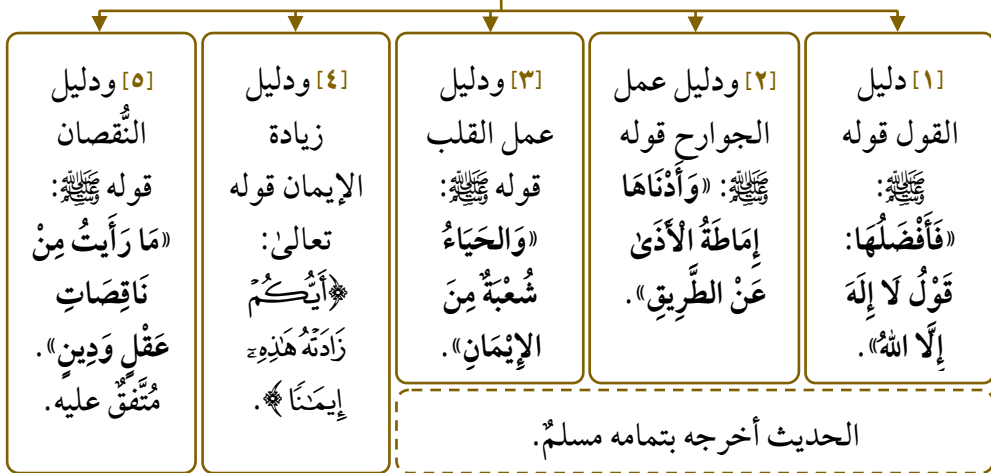 [١] دليل
القول قوله
ﷺ:
«فَأَفْضَلُهَا:
قَوْلُ لَا إِلَهَ
إِلَّا اللهُ».
[٢] ودليل عمل
الجوارح قوله
ﷺ: «وَأَدْنَاهَا
إِمَاطَةُ الْأَذَىٰ
عَنْ الطَّرِيقِ».
[٣] ودليل
عمل القلب
قوله ﷺ:
«وَالحَيَاءُ
شُعْبَةٌ مِنَ
الإِيْمَانِ».
[٤] ودليل
زيادة
الإيمان قوله
تعالىٰ:
﴿أَيُّكُمۡ
زَادَتۡهُ هَٰذِهِۦٓ
إِيمَٰنٗا﴾.
[٥] ودليل
النُّقصان
قوله ﷺ:
«مَا رَأَيتُ مِنْ
نَاقِصَاتِ
عَقْلٍ وَدِينٍ».
مُتَّفقٌ عليه.
الحديث أخرجه بتمامه مسلمٌ.